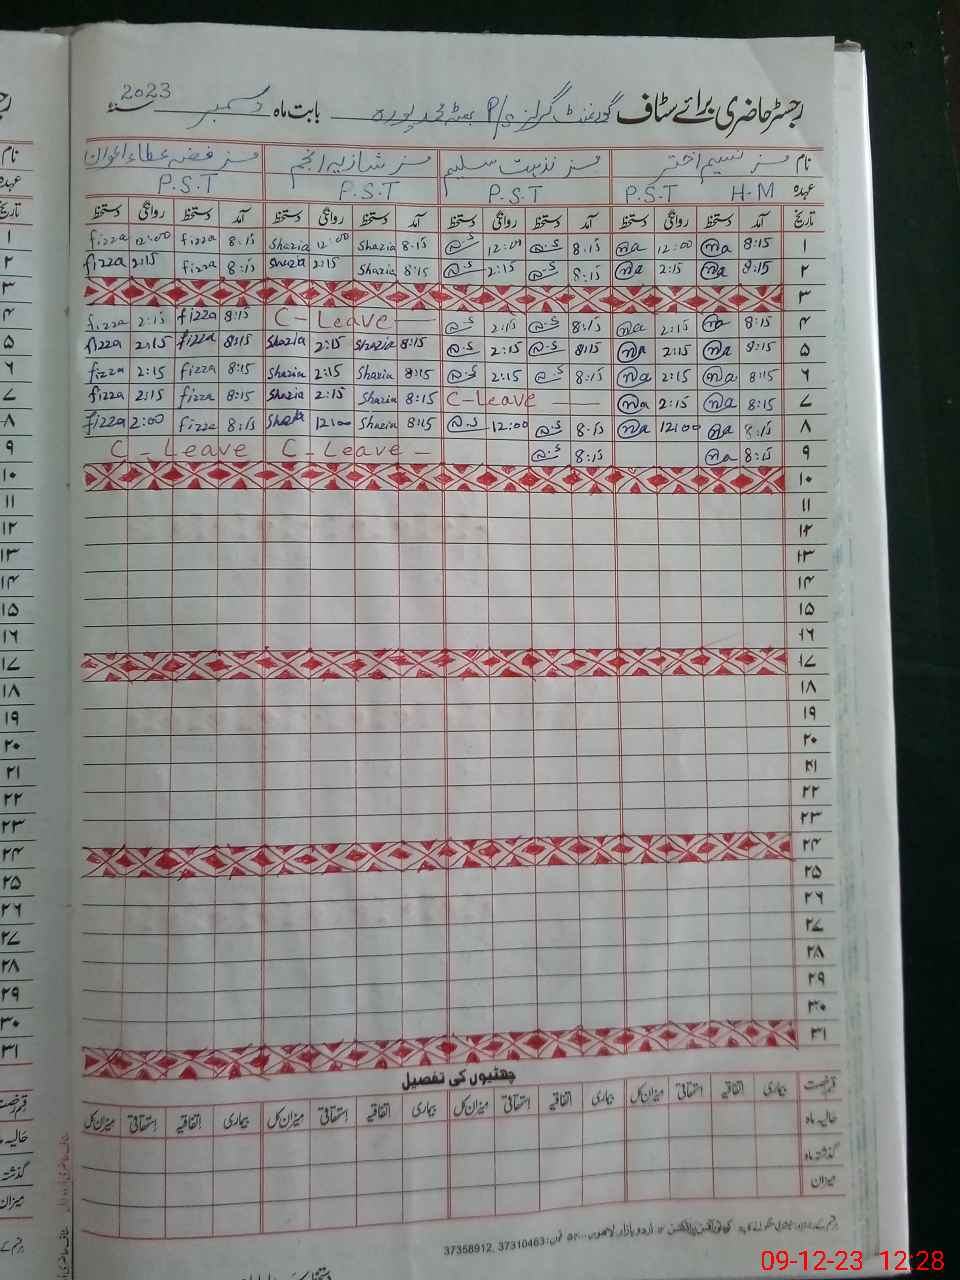 رجسٹر حاضری برائے سٹاف گورنمنٹ گرلز P/S بھٹہ محمد پورہ بابت ماہ دسمبر سنہ 2023
نام مسز نسیم اختر مسز نزہت سلیم مسز شازیہ انجم مسز فضہ عطاء اعوان
عہدہ H.M P.S.T P.S.T P.S.T P.S.T
تاریخ آمد دستخط روانگی دستخط آمد دستخط روانگی دستخط آمد دستخط روانگی دستخط آمد دستخط روانگی دستخط
۱ 8:15 Na 12:00 Na 8:15 12:01 8:15 Shazia 12:00 Shazia 8:15 fizza 12:00 fizza
۲ 8:15 Na 2:15 Na 8:15 2:15 8:15 Shazia 2:15 Shazia 8:15 fizza 2:15 fizza
۳
۴ 8:15 Na 2:15 Na 8:15 2:15 C-Leave 8:15 fizza 2:15 fizza
۵ 8:15 Na 2:15 Na 8:15 2:15 8:15 Shazia 2:15 Shazia 8:15 fizza 2:15 fizza
۶ 8:15 Na 2:15 Na 8:15 2:15 8:15 Shazia 2:15 Shazia 8:15 fizza 2:15 fizza
۷ 8:15 Na 2:15 Na C-Leave 8:15 Shazia 2:15 Shazia 8:15 fizza 2:15 fizza
۸ 8:15 Na 12:00 Na 8:15 12:00 8:15 Shazia 12:00 Shazia 8:15 fizza 2:00 fizza
۹ 8:15 Na 8:15 C-Leave C-Leave
۱۰
۱۱
۱۲
۱۳
۱۴
۱۵
۱۶
۱۷
۱۸
۱۹
۲۰
۲۱
۲۲
۲۳
۲۴
۲۵
۲۶
۲۷
۲۸
۲۹
۳۰
۳۱
چھٹیوں کی تفصیل
قسم رخصت بیماری اتفاقیہ استحقاقی میزان کل بیماری اتفاقیہ استحقاقی میزان کل بیماری اتفاقیہ استحقاقی میزان کل بیماری اتفاقیہ استحقاقی میزان کل
حالیہ ماہ
گذشتہ ماہ
میزان
اردو بازار لاہور فون: 37310463, 37358912
09-12-23 12:28